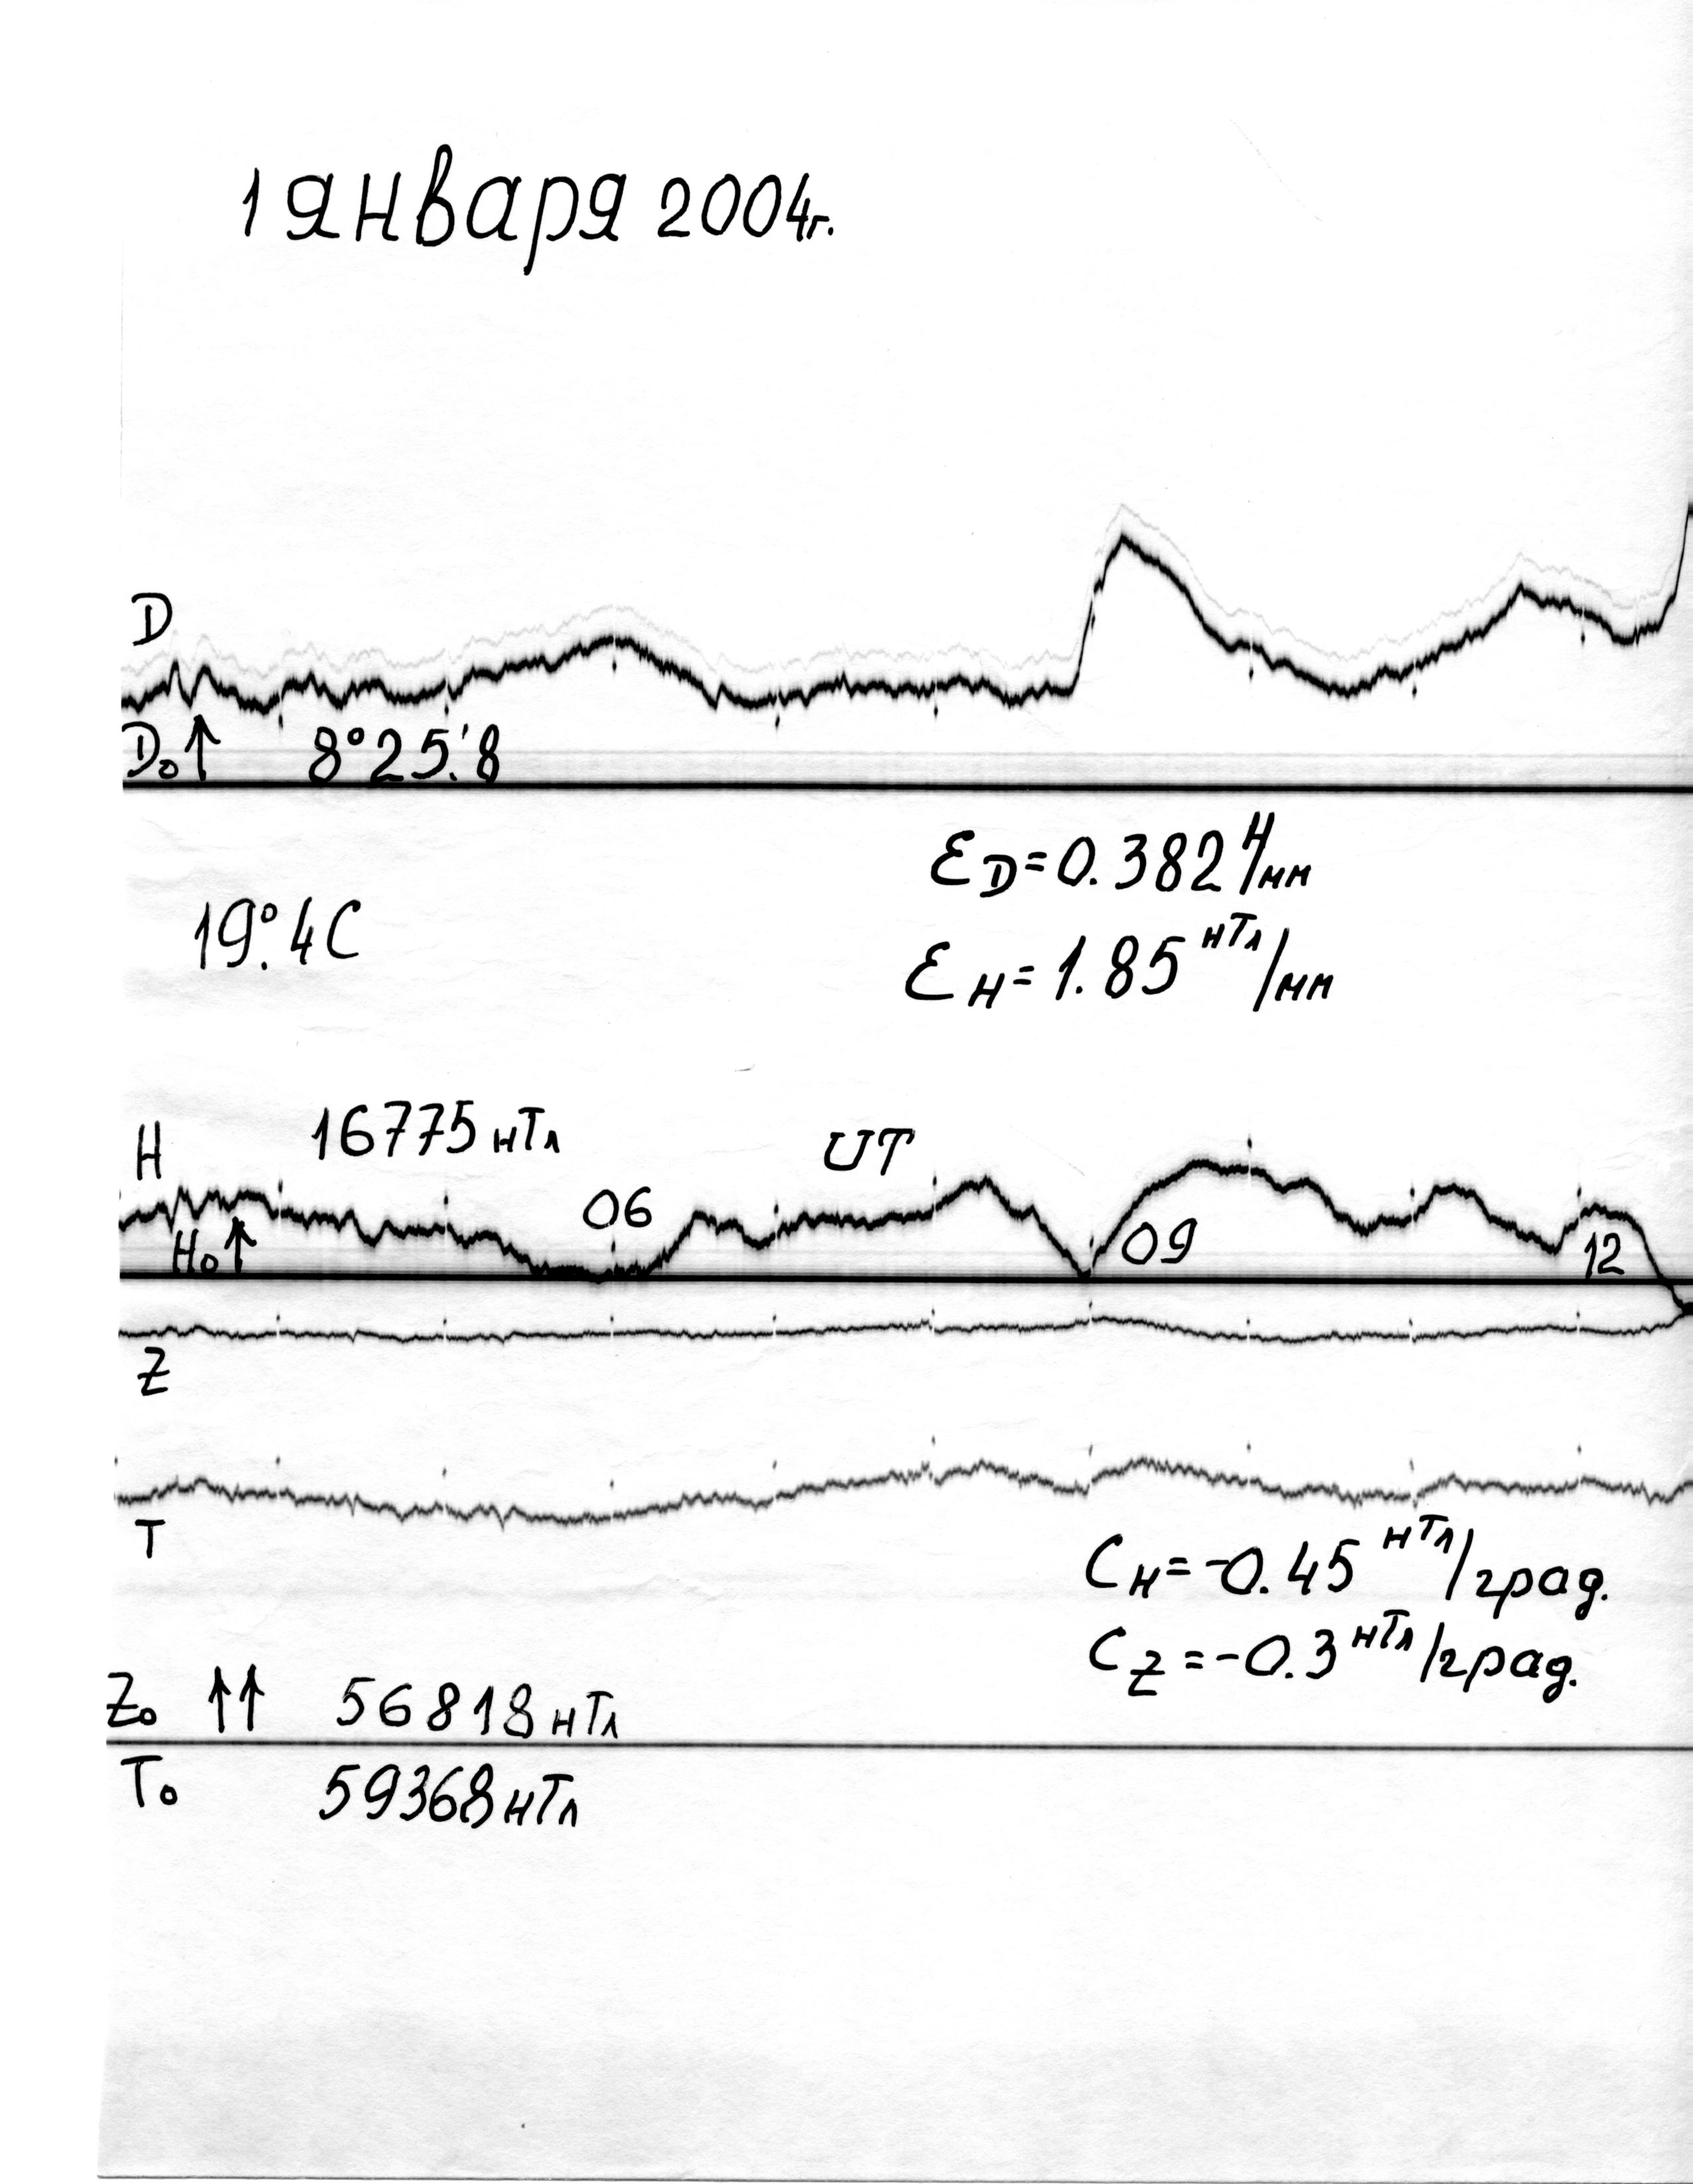 1 января 2004г.
D
D₀↑ 8°25.'8
ε_D=0.382 '/мм
19°.4C
ε_H=1.85 нТл/мм
H 16775 нТл
UT
06
H₀↑
09
12
Z
T
C_H=-0.45 нТл/град.
C_Z=-0.3 нТл/град.
Z₀ ↑↑ 56818 нТл
T₀ 59368 нТл